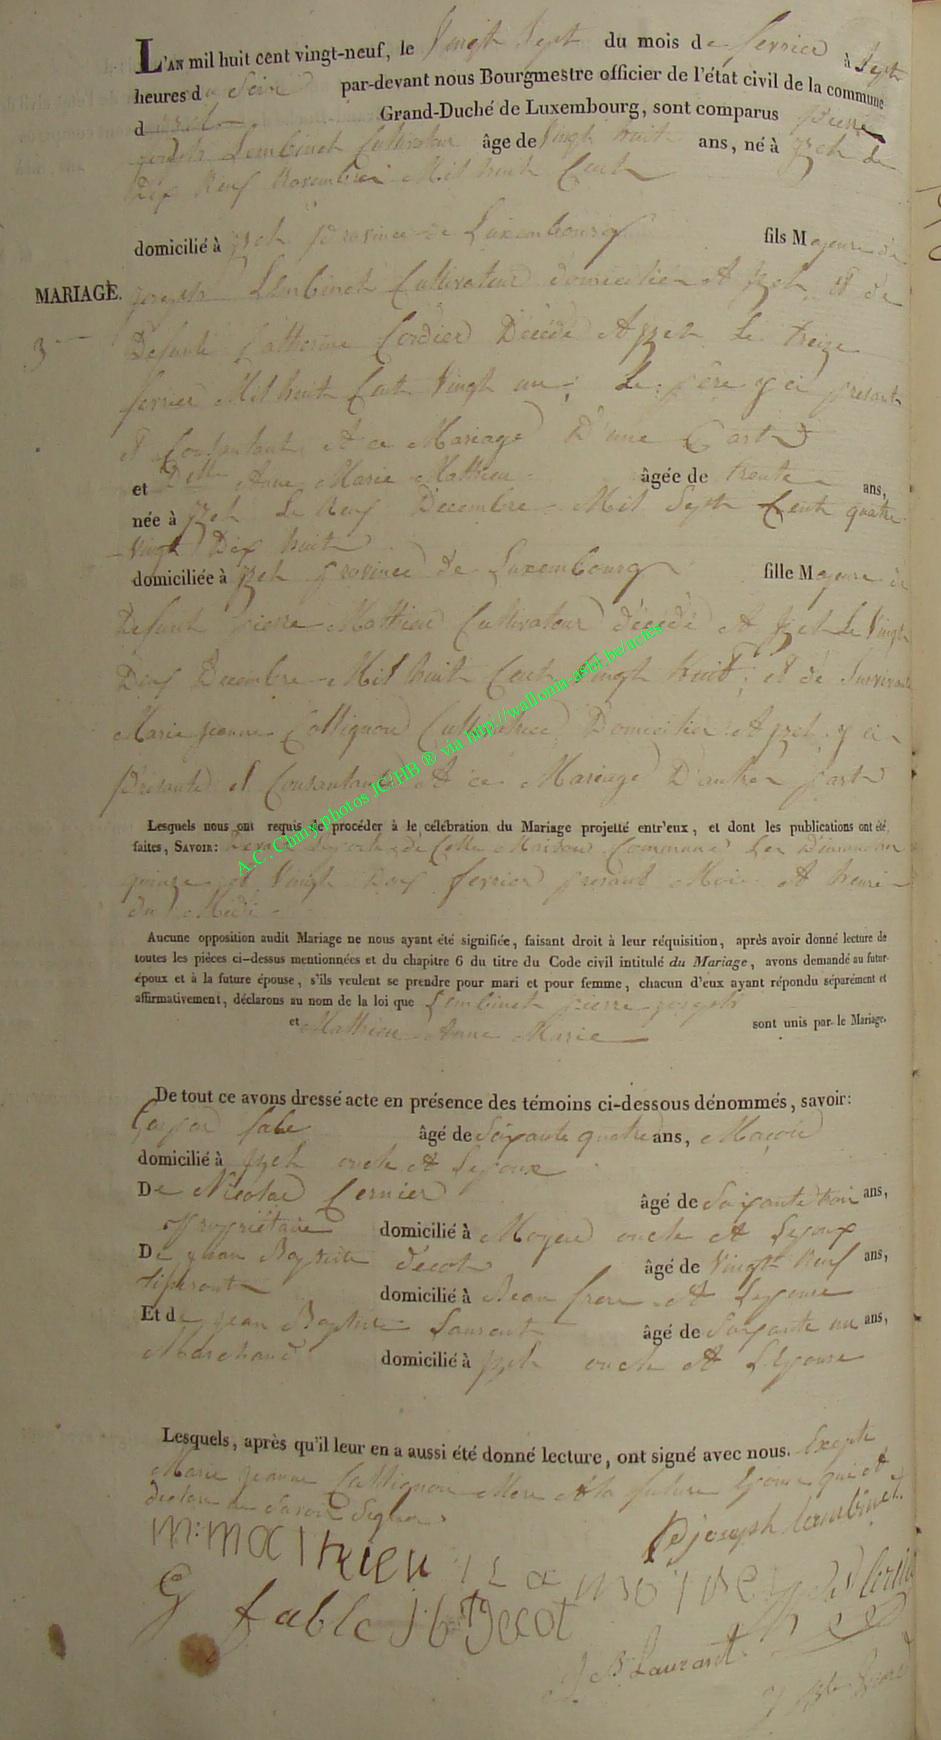 L'AN mil huit cent vingt-neuf, le Vingt Sept du mois de fevrier à Sept
heures du Soir par-devant nous Bourgmestre officier de l'état civil de la commune
d Grand-Duché de Luxembourg, sont comparus pierre
joseph Lembinet Cultivateur âge de Vingt huit ans, né à yzel Le
Dix Neuf Novembre Mil huit Cent
domicilié à yzel province de Luxembourg fils Majeure de
MARIAGE. joseph Lembinet Cultivateur domicilier A yzel, et de
3
Defunte Catherine Cordier Décédé A yzel Le treize
fevrier Mil huit Cent Vingt un; Le père y ci presant
et Consantant A ce Mariage D'une Part
et Delle Anne Marie Mathieu âgée de trente ans,
née à yzel Le Neuf Decembre Mil Sept Cent quatre
vingt Dix huit
domiciliée à yzel province de Luxembourg fille Majeure de
Defunt pierre Mathieu Cultivateur décédé A yzel Le Vingt
Decembre Mil huit Cent Vingt huit; et de Survivante
Marie jeanne Collignon Cultivatrice Domicilier A yzel y ci
présante et Consantante A ce Mariage D'autre part
Lesquels nous ont requis de procéder à le célébration du Mariage projetté entr'eux, et dont les publications ont été
faites, SAVOIR: Devant La porte de Cette Maison Commune Les Dimanche
quinze et Vingt Deux fevrier presant Mois A heure
du Midi
Aucune opposition audit Mariage ne nous ayant été signifiée, faisant droit à leur réquisition, après avoir donné lecture de
toutes les pièces ci-dessus mentionnées et du chapitre 6 du titre du Code civil intitulé du Mariage, avons demandé au futur
époux et à la future épouse, s'ils veulent se prendre pour mari et pour femme, chacun d'eux ayant répondu séparément et
affirmativement, déclarons au nom de la loi que Lembinet pierre joseph
et Mathieu Anne Marie sont unis par le Mariage.
De tout ce avons dressé acte en présence des témoins ci-dessous dénommés, savoir:
âgé de Soixante quatre ans, Maçon
domicilié à yzel oncle A Lepoux
De Nicolas âgé de Soixante trois ans,
propriétaire domicilié à Moyen oncle A Lepoux
De jean Baptiste décot âgé de Vingt Neuf ans,
domicilié à Beau frere A Lepouse
Et de jean Baptiste Laurent âgé de Soixante un ans,
Marchand domicilié à yzel oncle A Lepouse
Lesquels, après qu'il leur en a aussi été donné lecture, ont signé avec nous. Excepte
Marie jeanne Collignon Mere A la future Epouse qui at
declare ne Savoir Signer
m: mathieu pe joseph lambinet
G fable J b Decot
J B Laurant
A.C. Chiny photos JC/HB ® via http://wallonia-asbl.be/actes